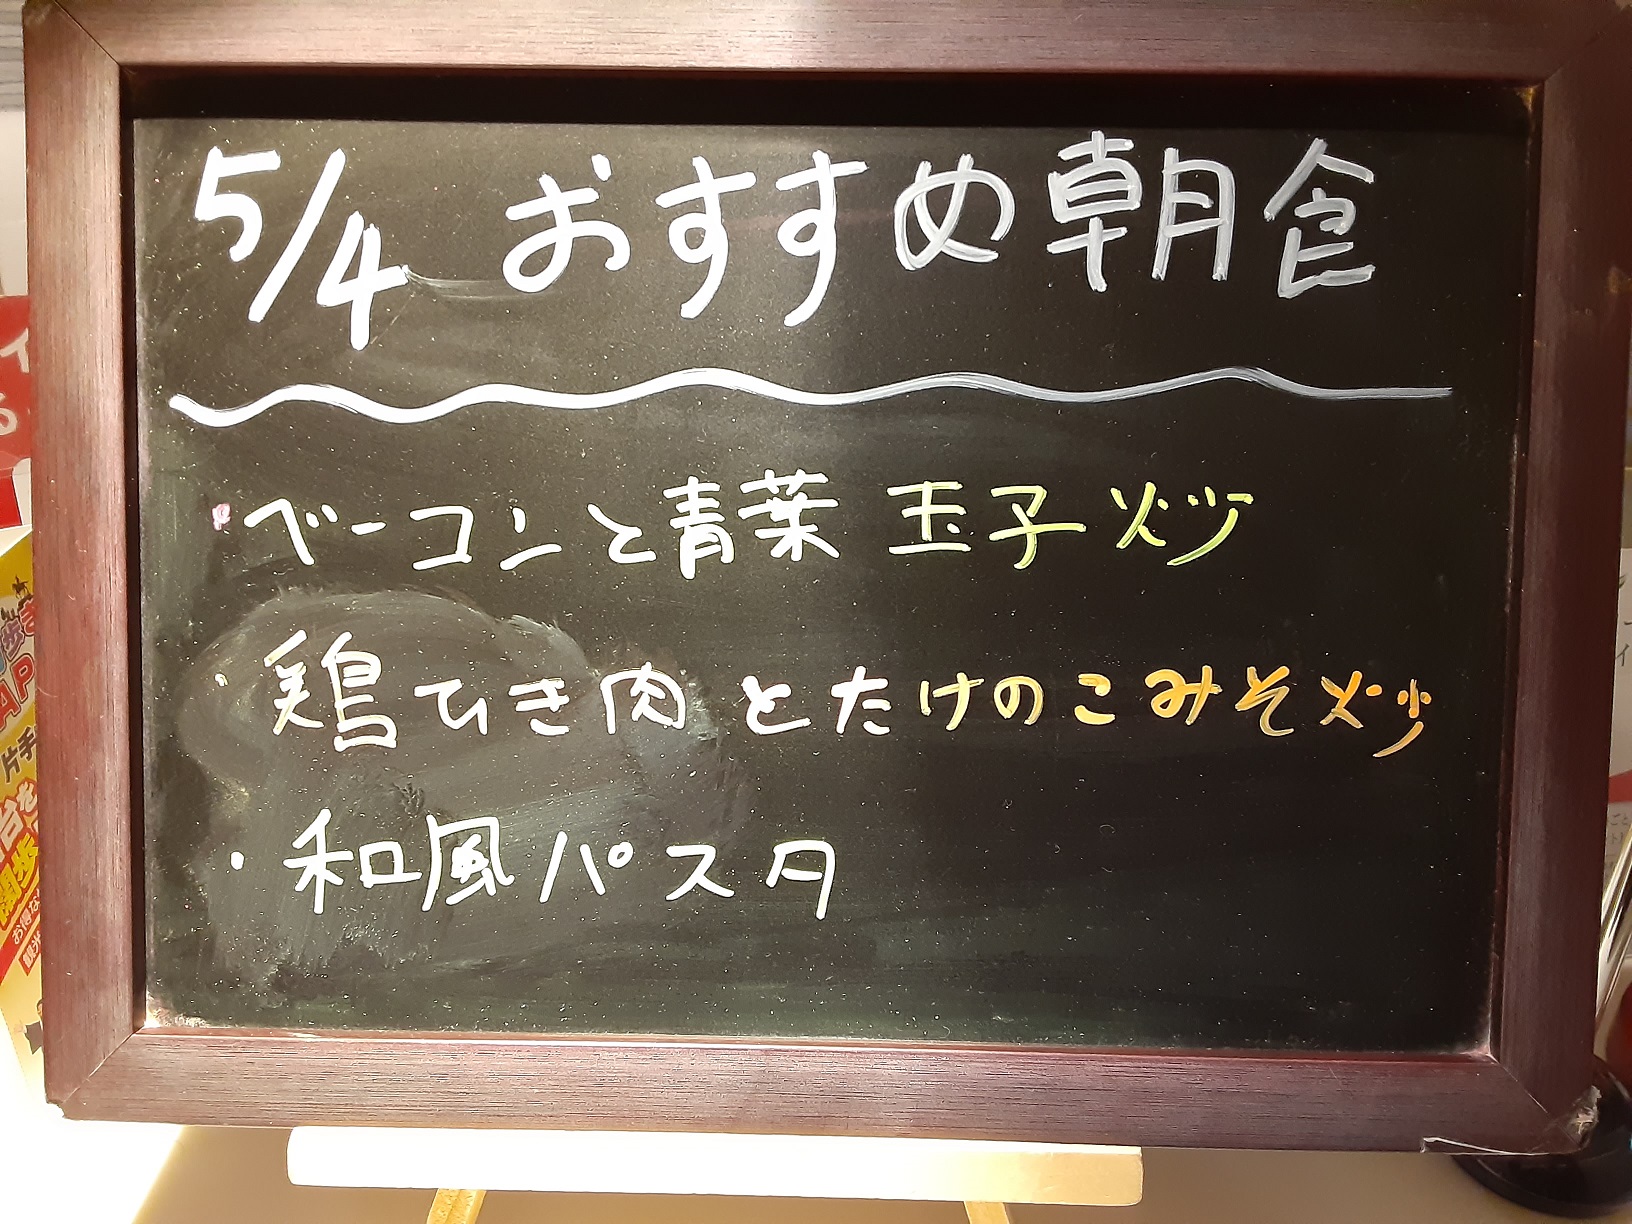 5/4 おすすめ朝食
・ベーコンと青葉 玉子炒
・鶏ひき肉とたけのこみそ炒
・和風パスタ
片手